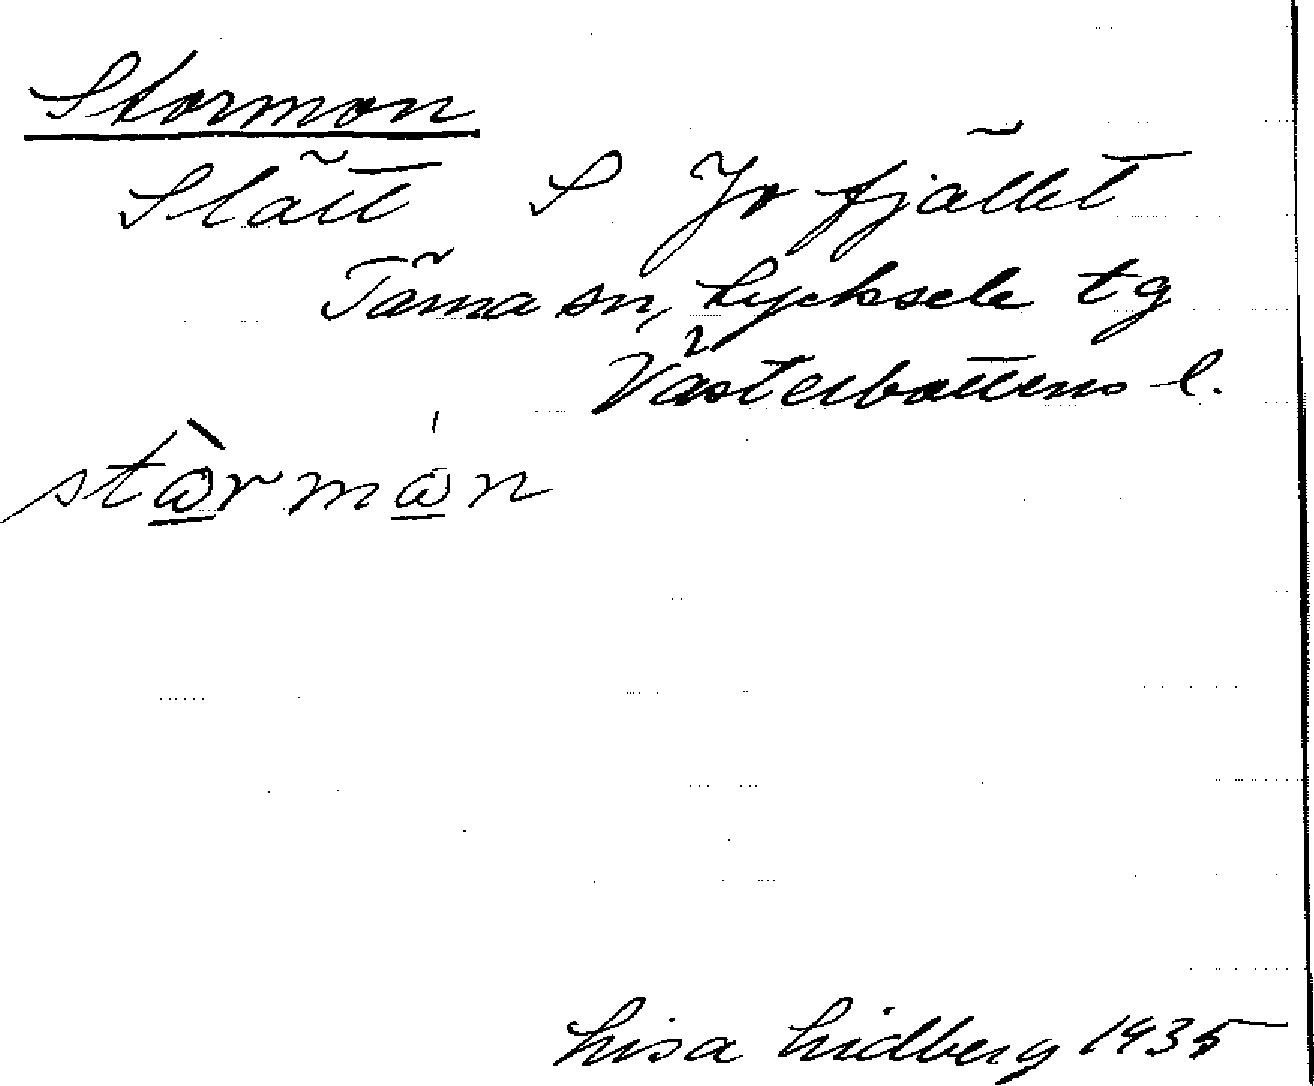 Stormon
Slätt S Jofjället
Tärna sn, Lycksele tg
Västerbottens l.
stò̱rmó̱n
Lisa Lidberg 1935